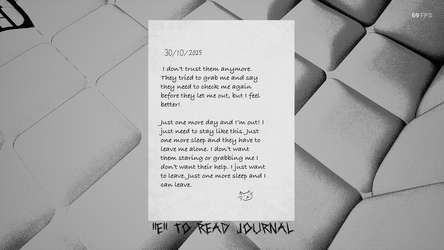 69 FPS
30/10/2025
I don't trust them anymore.
They tried to grab me and say
they need to check me again
before they let me out, but I feel
better!
Just one more day and I'm out! I
just need to stay like this. Just
one more sleep and they have to
leave me alone. I don't want
them staring or grabbing me I
don't want their help. I just want
to leave. Just one more sleep and I
can leave.
"E" TO READ JOURNAL